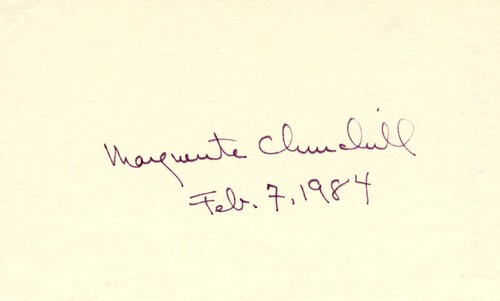 Marguerite Churchill
Feb. 7, 1984